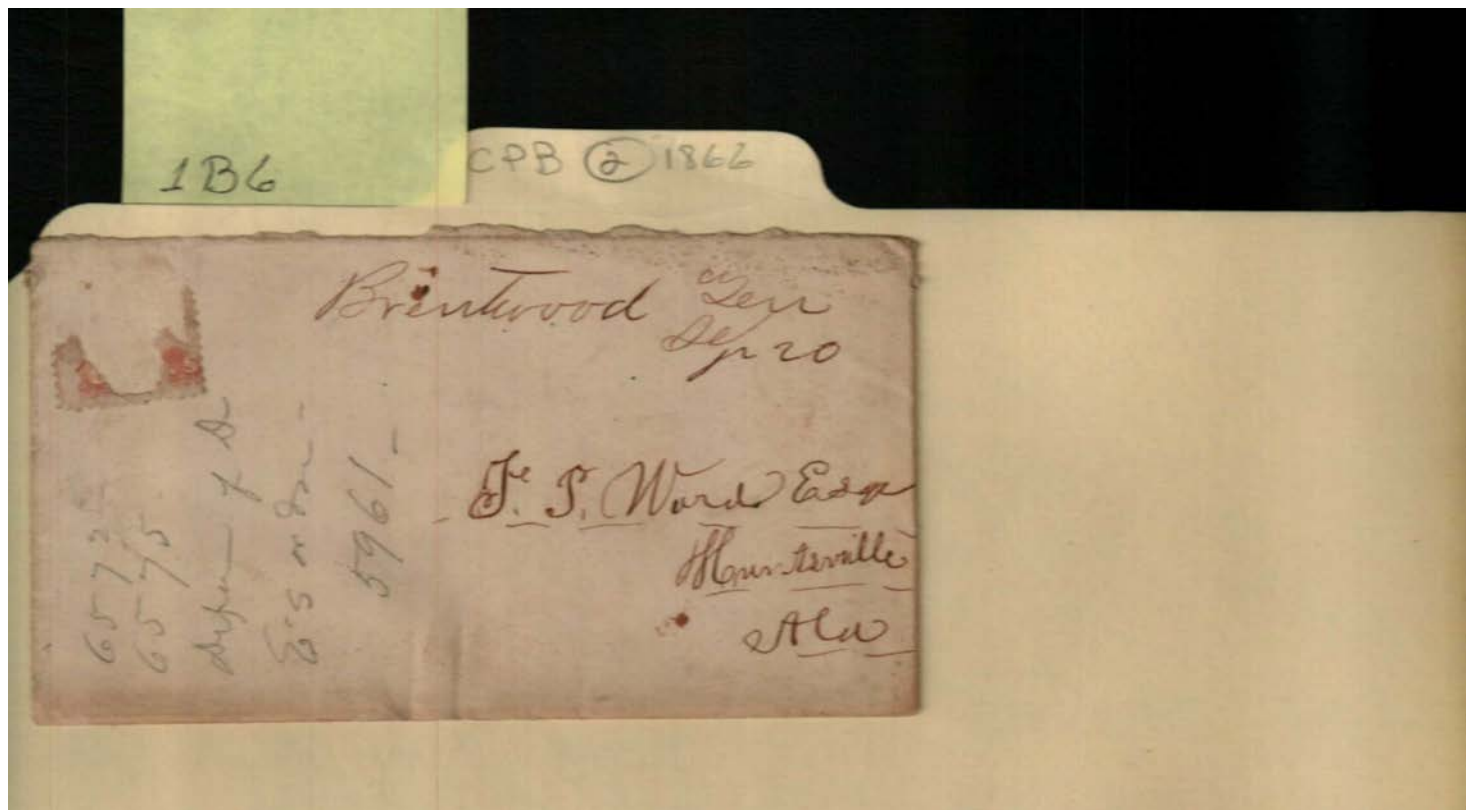 1B6
CPB 2 1866
Brentwood Ten
Sep 20
T. P. Ward Esqr
Huntsville
Ala
6572
6575
of
5961